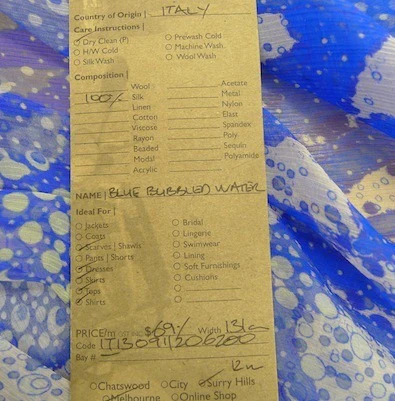 Country of Origin | ITALY
Care Instructions |
Dry Clean (P) Prewash Cold
H/W Cold Machine Wash
Silk Wash Wool Wash
Composition |
Wool Acetate
100% Silk Metal
Linen Nylon
Cotton Elast
Viscose Spandex
Rayon Poly
Beaded Sequin
Modal Polyamide
Acrylic
NAME | BLUE BUBBLED WATER
Ideal For |
Jackets Bridal
Coats Lingerie
Scarves | Shawls Swimwear
Pants | Shorts Lining
Dresses Soft Furnishings
Skirts Cushions
Tops
Shirts
PRICE/m $69/- Width
Code
Bay #
Chatswood City Surry Hills
Melbourne Online Shop